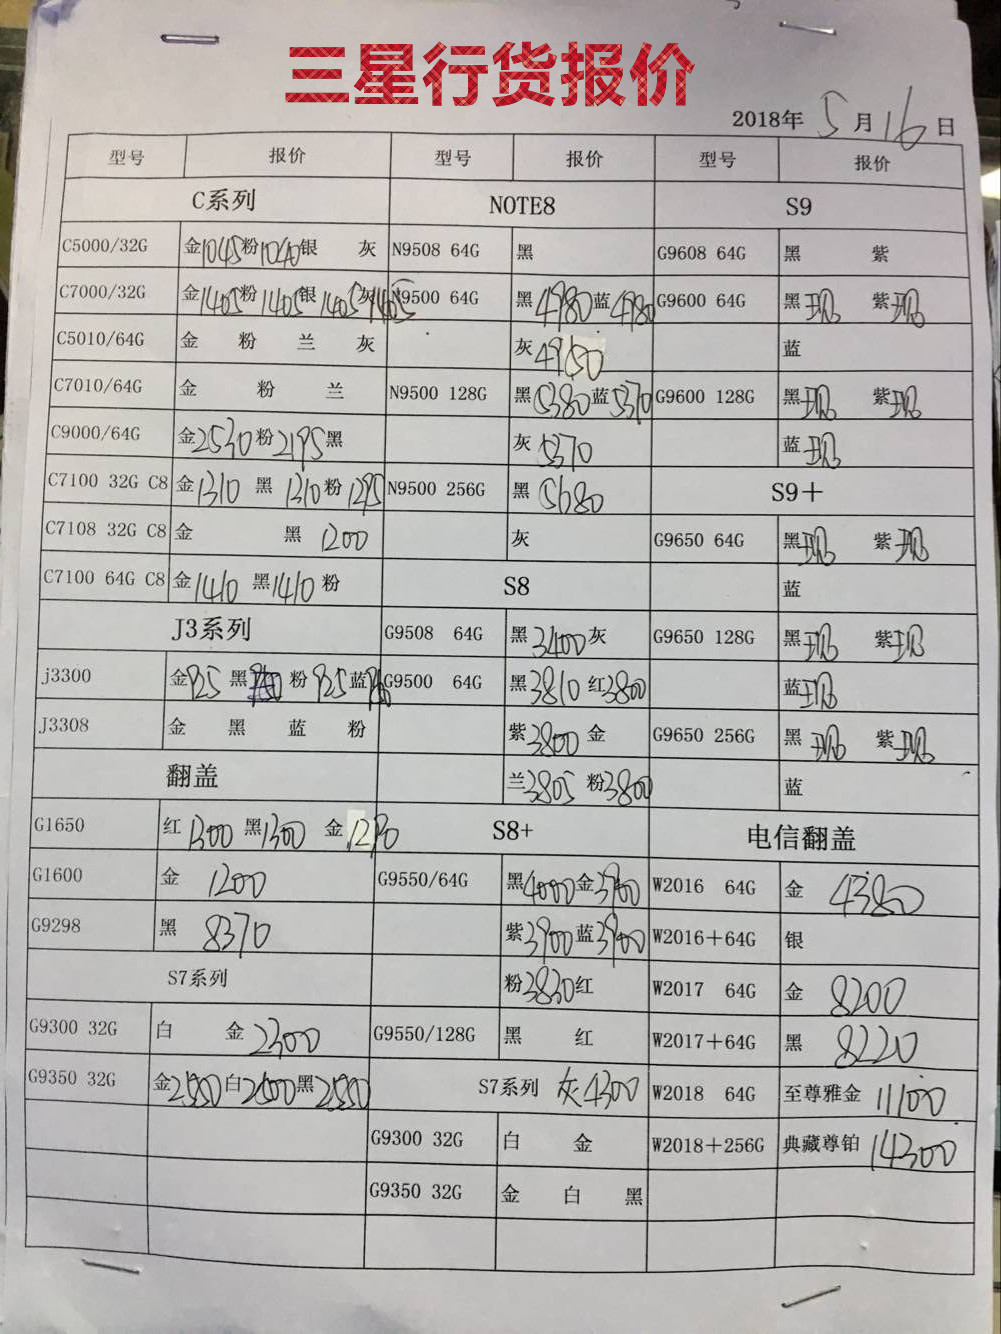 三星行货报价
2018年 5 月 16 日
型号 报价 型号 报价 型号 报价
C系列 NOTE8 S9
C5000/32G 金1045粉1040银 灰 N9508 64G 黑 G9608 64G 黑 紫
C7000/32G 金1405粉1405银1405灰1405 N9500 64G 黑4980蓝4980 G9600 64G 黑现 紫现
C5010/64G 金 粉 兰 灰 灰4950 蓝
C7010/64G 金 粉 兰 N9500 128G 黑5380蓝5370 G9600 128G 黑现 紫现
C9000/64G 金2530粉2195黑 灰5370 蓝现
C7100 32G C8 金1310 黑1310粉1295 N9500 256G 黑5680 S9＋
C7108 32G C8 金 黑1200 灰 G9650 64G 黑现 紫现
C7100 64G C8 金1410 黑1410粉 S8 蓝
J3系列 G9508 64G 黑3400灰 G9650 128G 黑现 紫现
j3300 金925 黑 粉925蓝 G9500 64G 黑3810 红3800 蓝现
J3308 金 黑 蓝 粉 紫3800 金 G9650 256G 黑现 紫现
翻盖 兰3805 粉3800 蓝
G1650 红1300 黑1300 金1290 S8+ 电信翻盖
G1600 金 1200 G9550/64G 黑4000金3900 W2016 64G 金 4380
G9298 黑 8370 紫3900蓝3900 W2016＋64G 银
S7系列 粉3830红 W2017 64G 金 8200
G9300 32G 白 金2300 G9550/128G 黑 红 W2017＋64G 黑 8220
G9350 32G 金2550白2600黑2550 S7系列 灰4300 W2018 64G 至尊雅金 11100
G9300 32G 白 金 W2018＋256G 典藏尊铂 14300
G9350 32G 金 白 黑